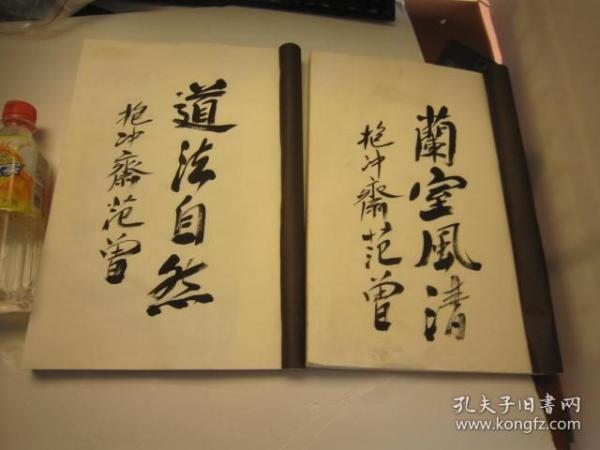 道法自然
抱冲齋范曾
蘭室風清
抱冲齋范曾
孔夫子旧書网
www.kongfz.com